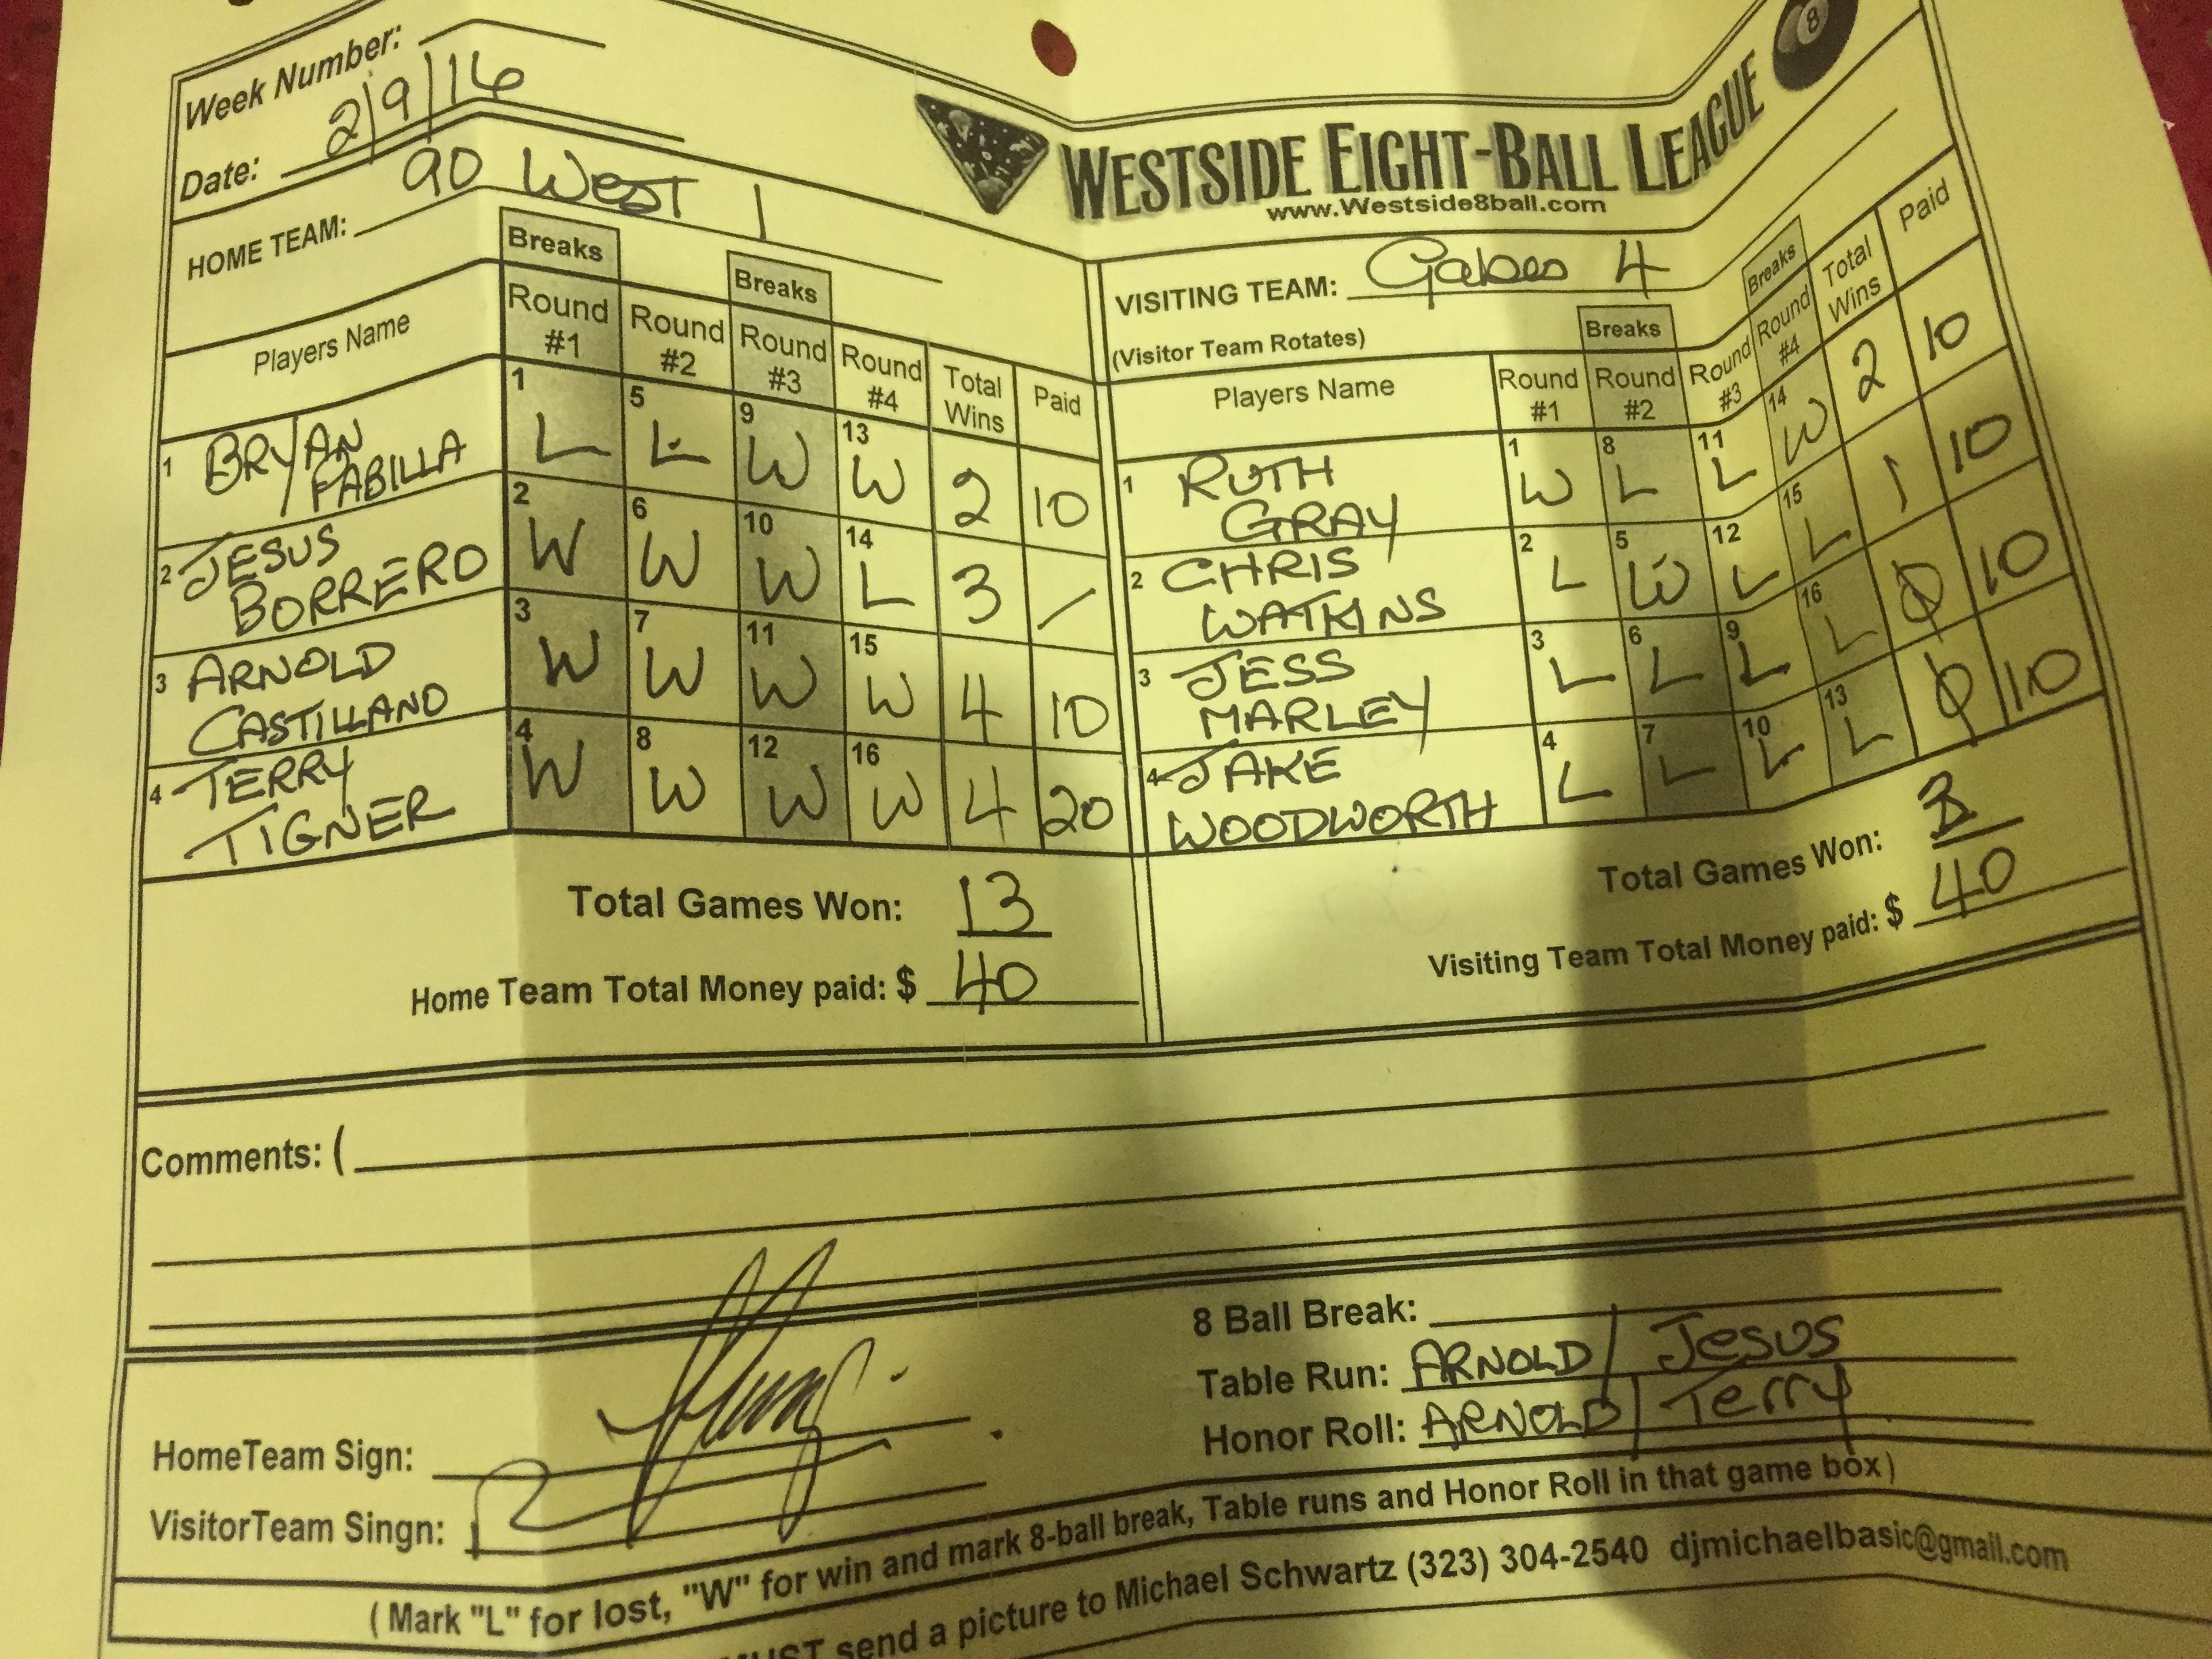 Week Number:
Date: 2/9/16
WESTSIDE EIGHT-BALL LEAGUE
www.Westside8ball.com
HOME TEAM: 90 West 1
Breaks
Breaks
Players Name Round #1 Round #2 Round #3 Round #4 Total Wins Paid
1 BRYAN PABILLA 1 L 5 L 9 W 13 W 2 10
2 JESUS BORRERO 2 W 6 W 10 W 14 L 3 /
3 ARNOLD CASTILLANO 3 W 7 W 11 W 15 W 4 10
4 TERRY TIGNER 4 W 8 W 12 W 16 W 4 20
Total Games Won: 13
Home Team Total Money paid: $ 40
VISITING TEAM: Gabes 4
(Visitor Team Rotates)
Breaks
Breaks
Players Name Round #1 Round #2 Round #3 Round #4 Total Wins Paid
1 RUTH GRAY 1 W 8 L 11 L 14 W 2 10
2 CHRIS WATKINS 2 L 5 W 12 L 15 L 1 10
3 JESS MARLEY 3 L 6 L 9 L 16 L 0 10
4 JAKE WOODWORTH 4 L 7 L 10 L 13 L 0 10
Total Games Won: 3
Visiting Team Total Money paid: $ 40
Comments: (
8 Ball Break:
Table Run: ARNOLD / Jesus
Honor Roll: ARNOLD / Terry
HomeTeam Sign:
VisitorTeam Singn:
( Mark "L" for lost, "W" for win and mark 8-ball break, Table runs and Honor Roll in that game box)
MUST send a picture to Michael Schwartz (323) 304-2540 djmichaelbasic@gmail.com